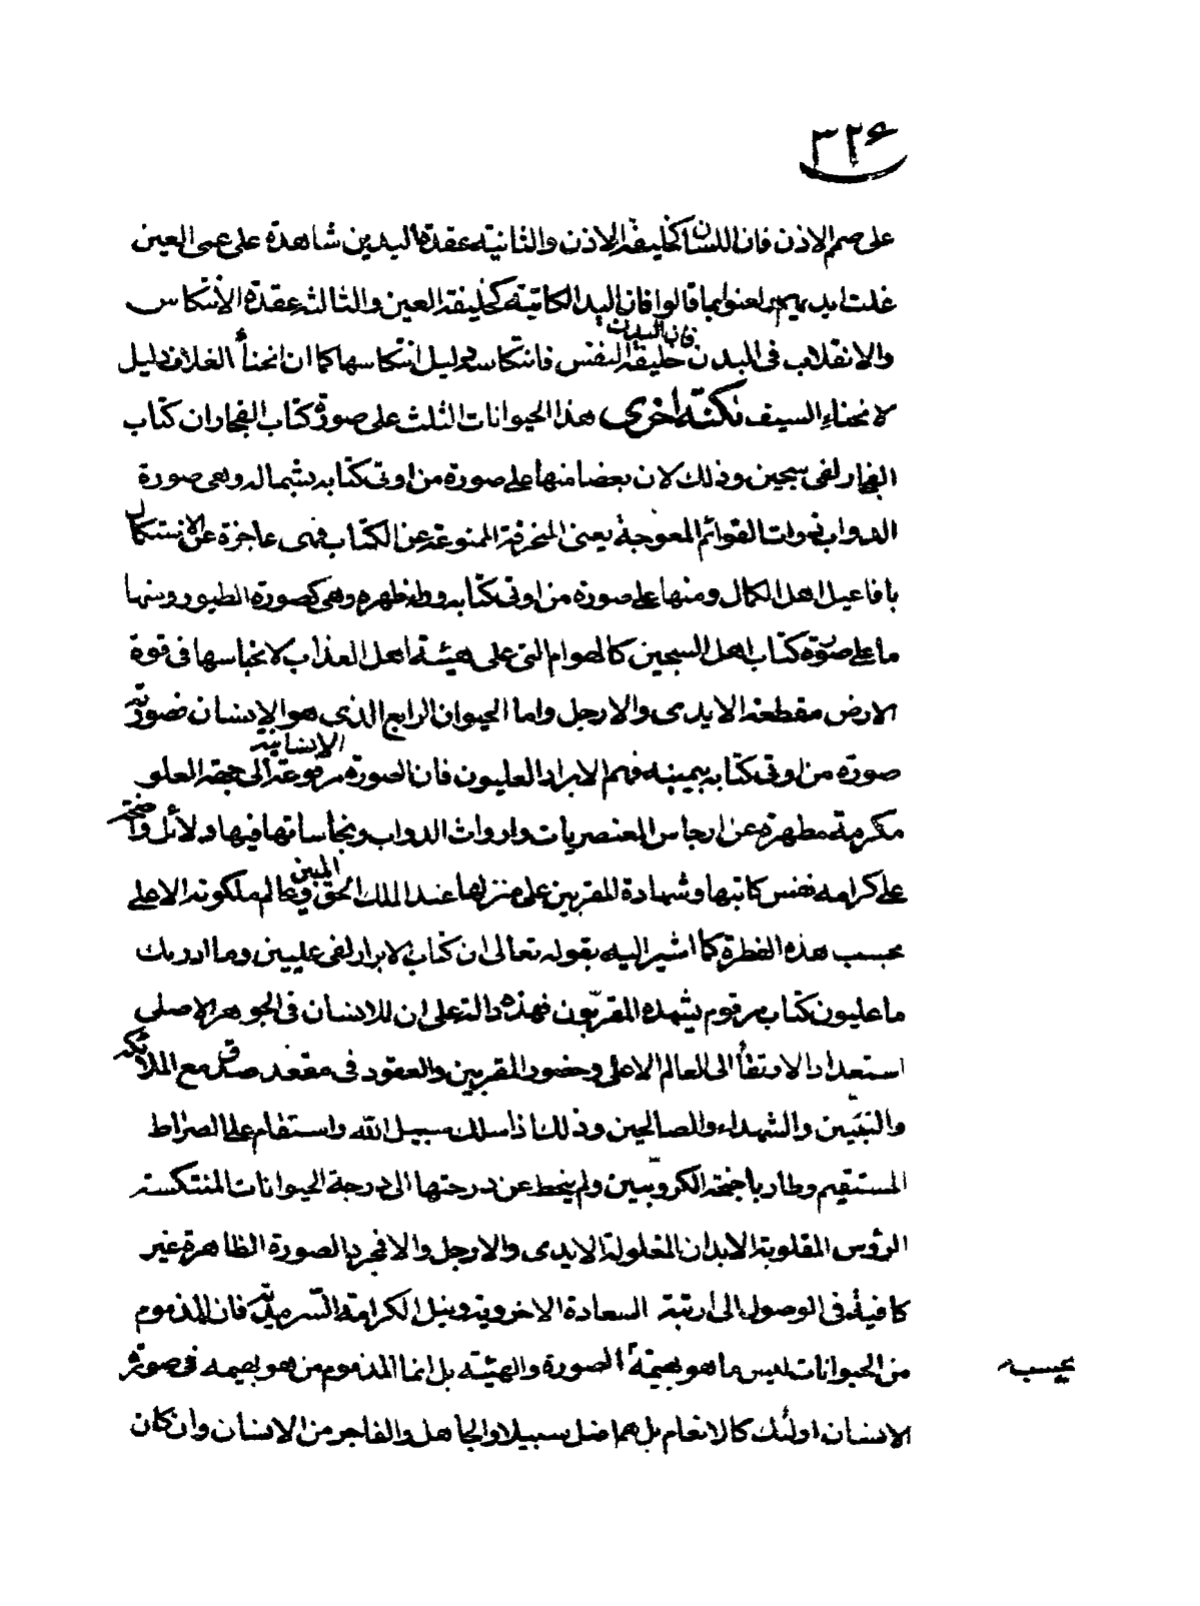 ٣٢۶
على صمم الاذن فان اللسان كخليفة الاذن والثانية عقدة اليدين شاهدة على عمى العين
غلت ايديهم ولعنوا بما قالوا فان اليد الكاتبة كخليفة العين والثالثة عقدة الانتكاس
فان البدن
والانقلاب فى البدن خليفة النفس فانتكاسه دليل انتكاسها كما ان انحناء الغلاف دليل
لانحناء السيف نكتة اخرى هذا الحيوانات الثلث على صورة كتاب الفجار ان كتاب
الفجار لفى سجين وذلك لان بعضا منها على صورة من اوتى كتابه بشماله وهى صورة
الدواب ذوات القوائم المعوجة يعنى المنحرفة الممنوعة عن الكتاب فهى عاجزة عن الاستكمال
بافاعيل اهل الكمال ومنها على صورة من اوتى كتابه وراء ظهره وهى كصورة الطيور ومنها
ما على صورة كتاب اهل السجين كالهوام التى على هيئة اهل العذاب لانحباسها فى قوة
الارض مقطعة الايدى والارجل واما الحيوان الرابع الذى هو الانسان فصورته
الانسانية
صورة من اوتى كتابه بيمينه فهم الابرار العليون فان الصورة مرفوعة الى جهة العلو
مكرمة مطهرة عن ارجاس العنصريات وارواث الدواب ونجاساتها فيها دلائل واضحة
المبين
على كرامه نفس كاتبها وشهادة المقربين على منزلها عند الملك الحق وفى عالم ملكوته الاعلى
بحسب هذه الفطرة كما اشير اليه بقوله تعالى ان كتاب الابرار لفى عليين وما ادريك
ما عليون كتاب مرقوم يشهده المقربون فهذه دالة على ان للانسان فى الجوهر الاصلى
استعداد الارتقاء الى العالم الاعلى وحضور المقربين والعقود فى مقعد صدق مع الملائكة
والنبيّين والشهداء والصالحين وذلك اذا سلك سبيل الله واستقام على الصراط
المستقيم وطار باجنحة الكروبيّين ولم ينحط عن درجتها الى درجة الحيوانات المنتكسة
الرؤس المقلوبة الابدان المغلولة الايدى والارجل والا فمجرد الصورة الظاهرة غير
كافية فى الوصول الى رتبة السعادة الاخروية ونيل الكرامة السّرمديّة فان المذموم
من الحيوانات ليس ما هو بهيمة الصورة والهيئة بل انما المذموم من هو بهيمه فى صورة
بحسب
الانسان اولئك كالانعام بل هم اضل سبيلا والجاهل والفاجر من الانسان وان كان